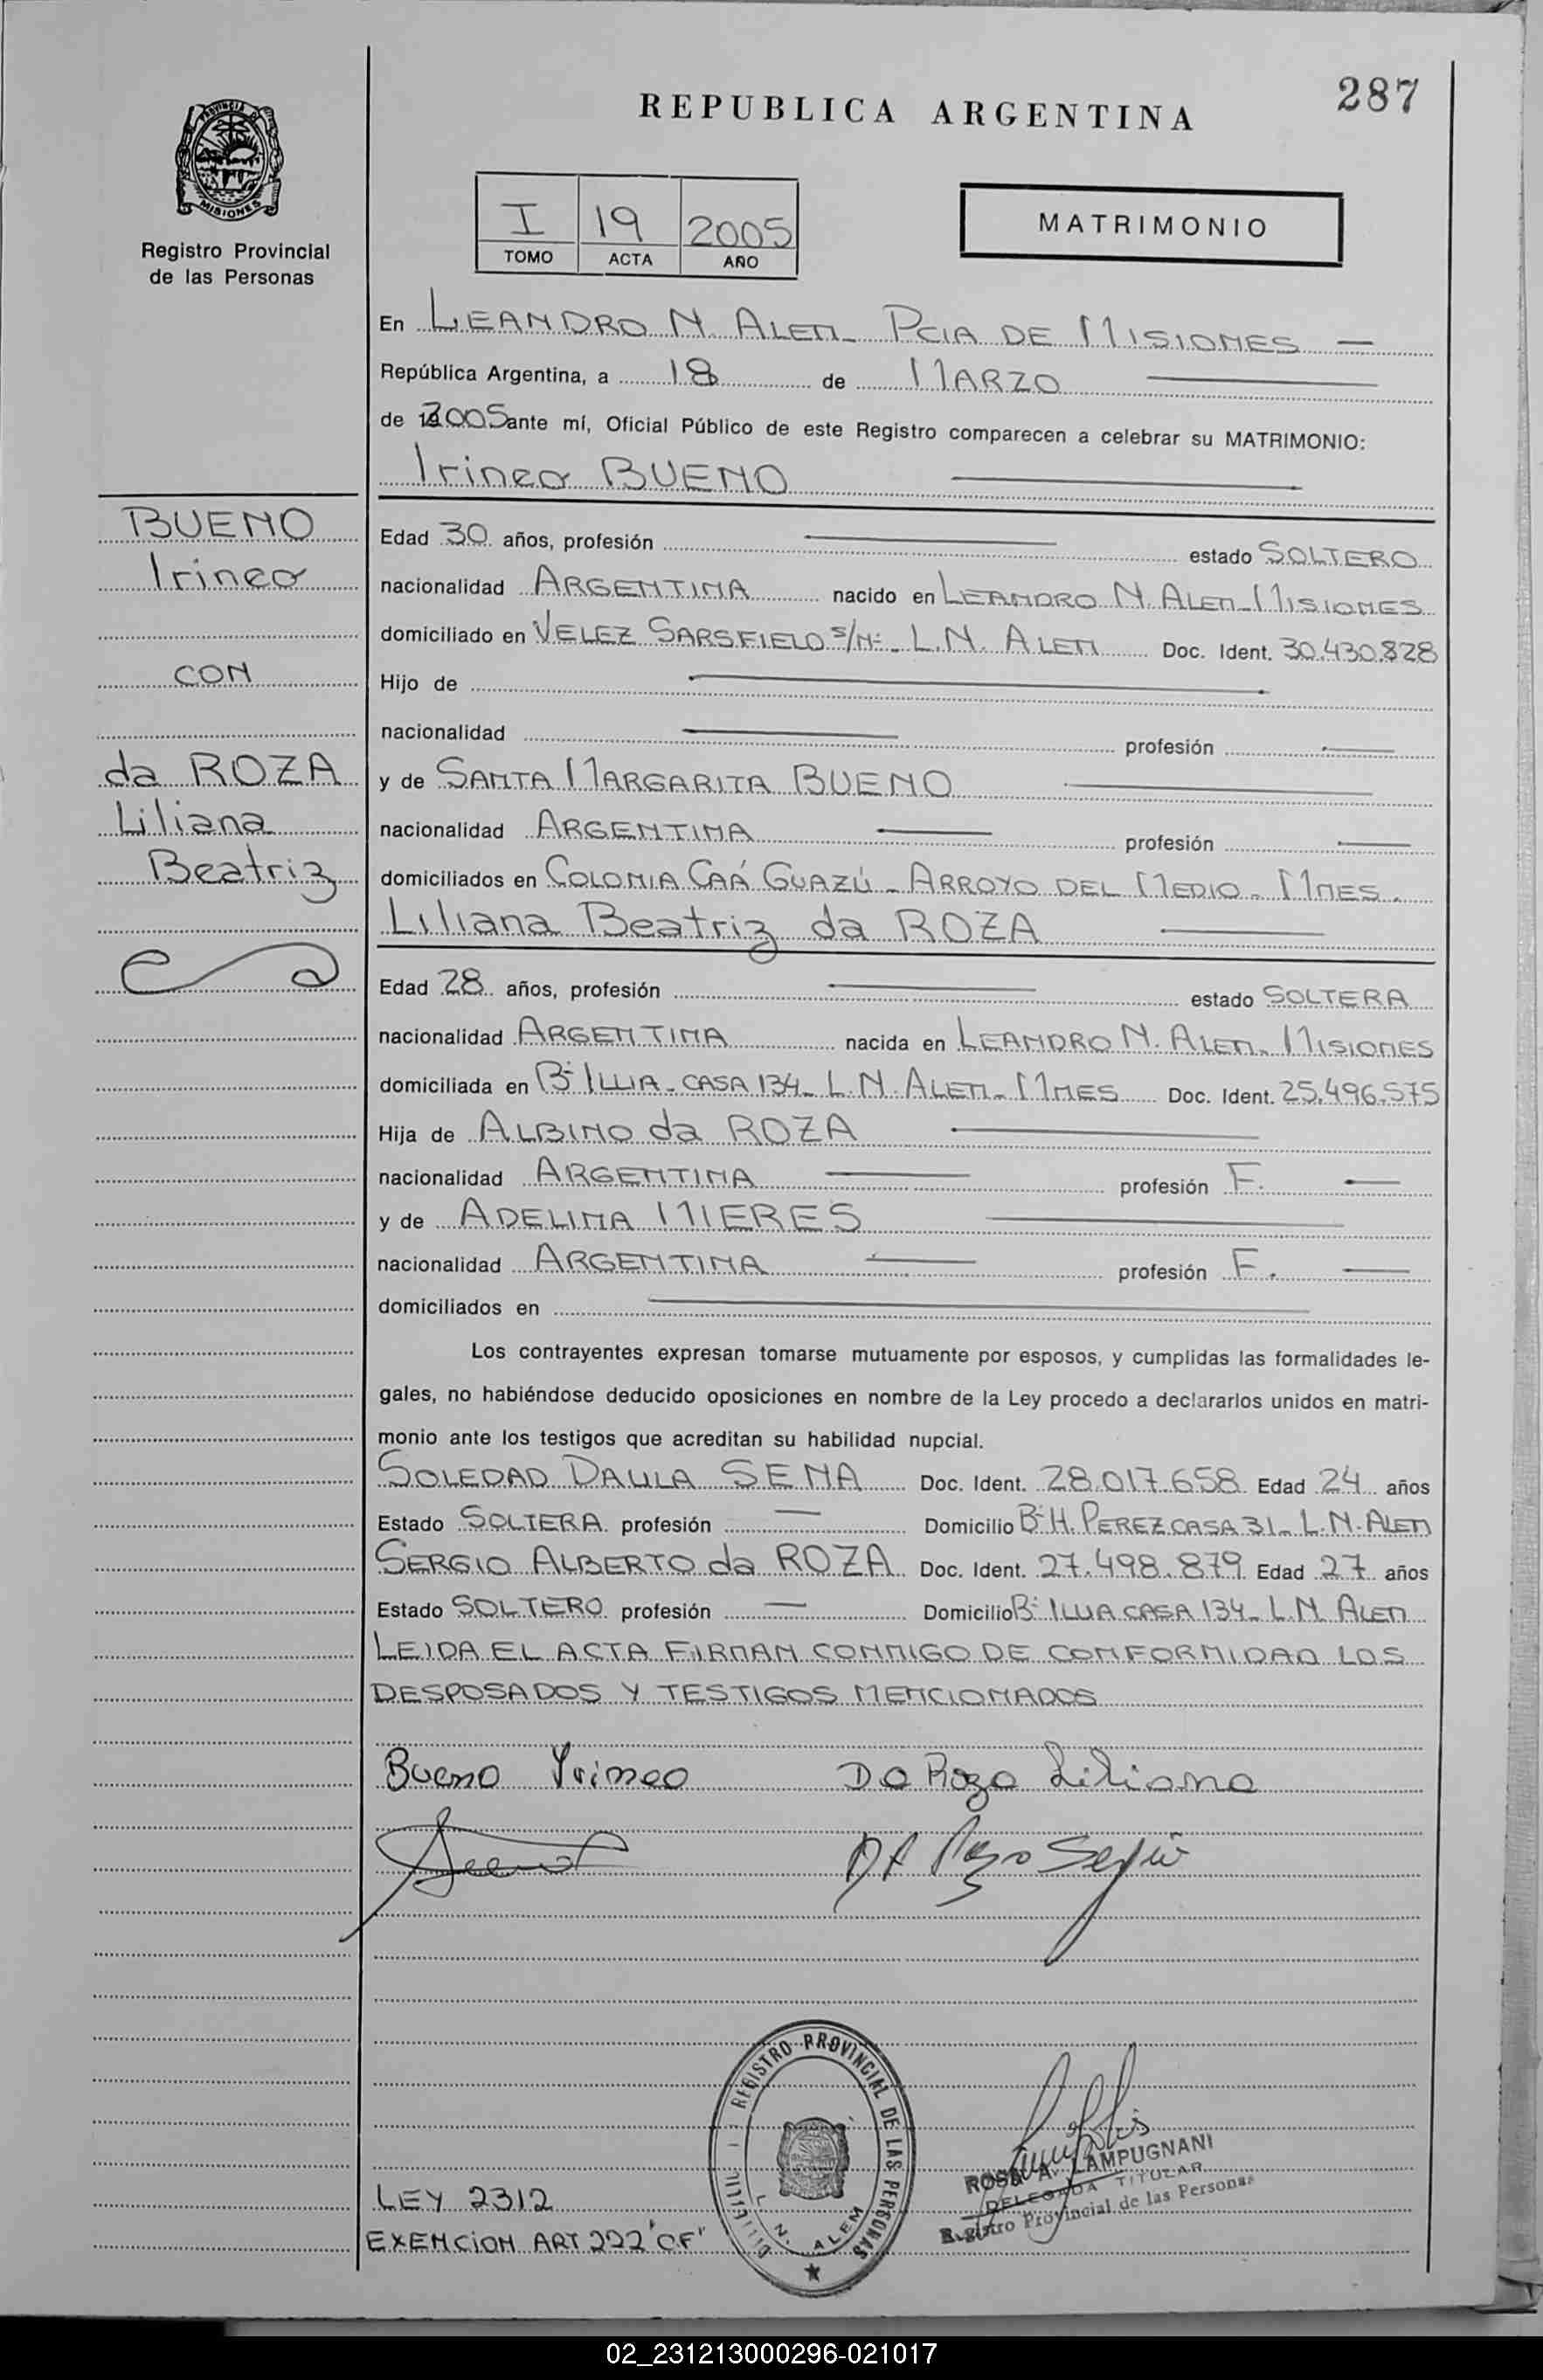 287
REPUBLICA ARGENTINA
PROVINCIA
MISIONES
Registro Provincial
de las Personas
I 19 2005
TOMO ACTA AÑO
MATRIMONIO
En LEANDRO N. ALEM - PCIA DE MISIONES —
República Argentina, a 18 de MARZO
de 2005 ante mí, Oficial Público de este Registro comparecen a celebrar su MATRIMONIO:
Irineo BUENO
BUENO
Irineo
CON
da ROZA
Liliana
Beatriz
Edad 30 años, profesión — estado SOLTERO
nacionalidad ARGENTINA nacido en LEANDRO N. ALEM - MISIONES
domiciliado en VELEZ SARSFIELD S/Nº - L.N. ALEM Doc. Ident. 30.430.828
Hijo de —
nacionalidad — profesión —
y de SANTA MARGARITA BUENO —
nacionalidad ARGENTINA — profesión —
domiciliados en COLONIA CAÁ GUAZÚ - ARROYO DEL MEDIO - MNES.
Liliana Beatriz da ROZA —
Edad 28 años, profesión — estado SOLTERA
nacionalidad ARGENTINA nacida en LEANDRO N. ALEM - MISIONES
domiciliada en Bº ILLIA - CASA 134 - L.N. ALEM - MNES Doc. Ident. 25.496.575
Hija de ALBINO da ROZA —
nacionalidad ARGENTINA — profesión F. —
y de ADELINA MIERES —
nacionalidad ARGENTINA — profesión F. —
domiciliados en —
Los contrayentes expresan tomarse mutuamente por esposos, y cumplidas las formalidades le-
gales, no habiéndose deducido oposiciones en nombre de la Ley procedo a declararlos unidos en matri-
monio ante los testigos que acreditan su habilidad nupcial.
SOLEDAD SENA Doc. Ident. 28.017.658 Edad 24 años
Estado SOLTERA profesión — Domicilio Bº H. PEREZ CASA 31 - L.N. ALEM
SERGIO ALBERTO da ROZA Doc. Ident. 27.498.879 Edad 27 años
Estado SOLTERO profesión — Domicilio Bº ILLIA CASA 134 - L.N. ALEM
LEIDA EL ACTA FIRMAN CONMIGO DE CONFORMIDAD LOS
DESPOSADOS Y TESTIGOS MENCIONADOS
Bueno Yrineo Da Roza Liliana
DA Rozo Sergio
REGISTRO PROVINCIAL DE LAS PERSONAS
L. N. ALEM
ROSA A. LAMPUGNANI
DELEGADA TITULAR
Registro Provincial de las Personas
LEY 2312
EXENCION ART 222 "CF"
02_231213000296-021017